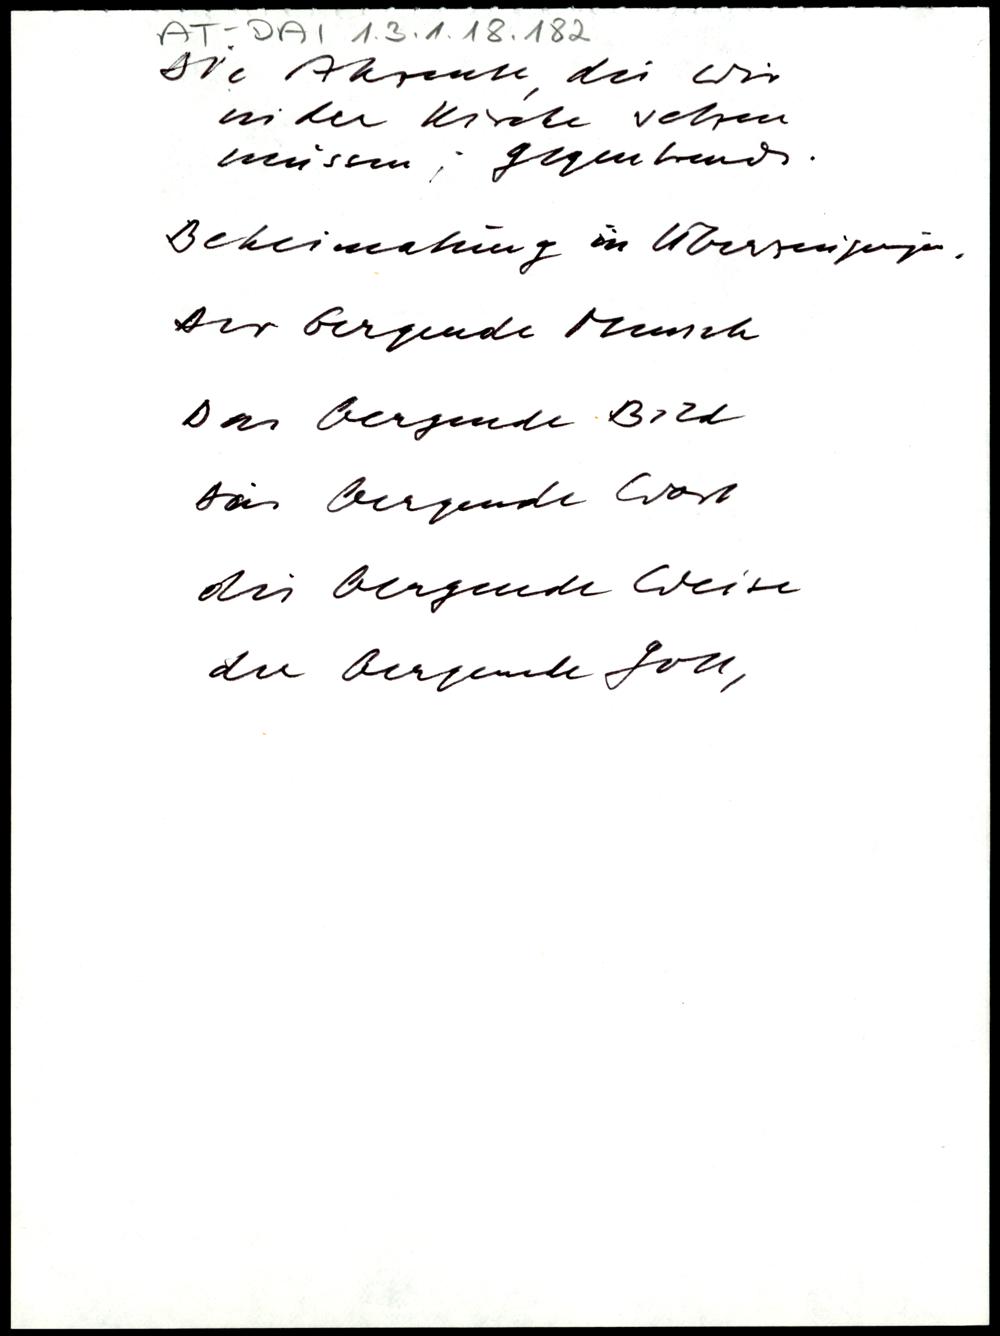 AT-DAI 1.3.1.18.182
Die Akzente, die wir
in der Kirche setzen
müssen; Gegentrends.
Beheimatung in Überzeugungen.
Der bergende Mensch
Das bergende Bild
Das bergende Wort
die bergende Weise
der bergende Gott,